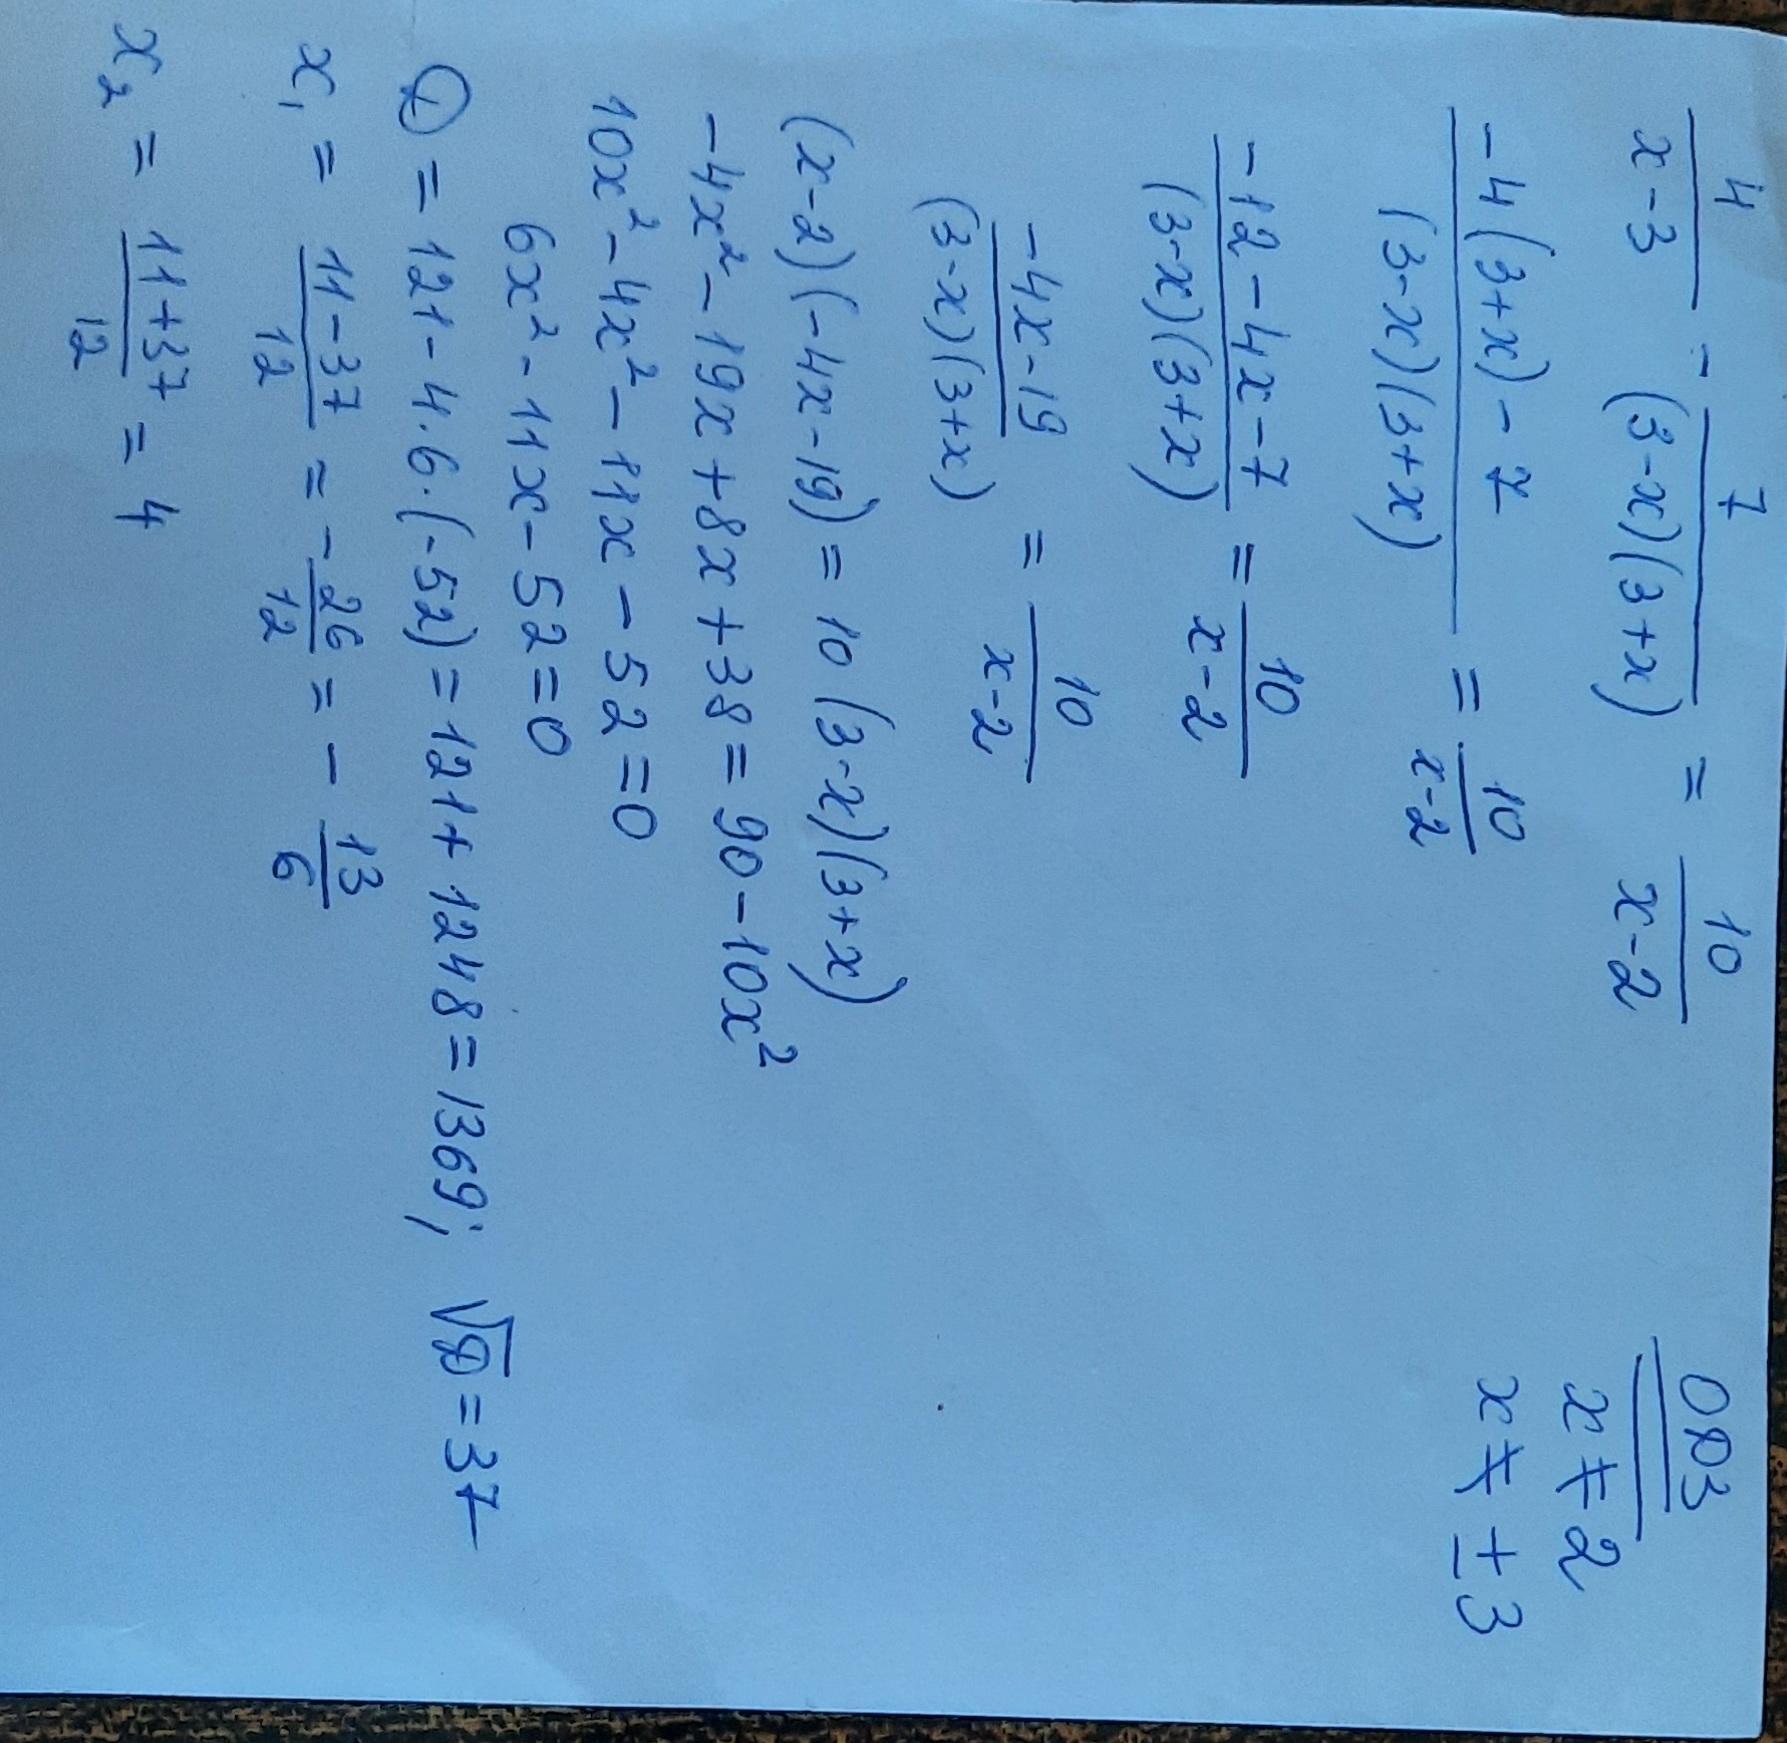 4/(x-3) - 7/((3-x)(3+x)) = 10/(x-2)
ОДЗ
x ≠ 2
x ≠ ±3
(-4(3+x)-7)/((3-x)(3+x)) = 10/(x-2)
(-12-4x-7)/((3-x)(3+x)) = 10/(x-2)
(-4x-19)/((3-x)(3+x)) = 10/(x-2)
(x-2)(-4x-19) = 10(3-x)(3+x)
-4x²-19x+8x+38 = 90-10x²
10x²-4x²-11x-52=0
6x²-11x-52=0
D = 121-4·6·(-52) = 121+1248 = 1369; √D = 37
x₁ = (11-37)/12 = -26/12 = -13/6
x₂ = (11+37)/12 = 4